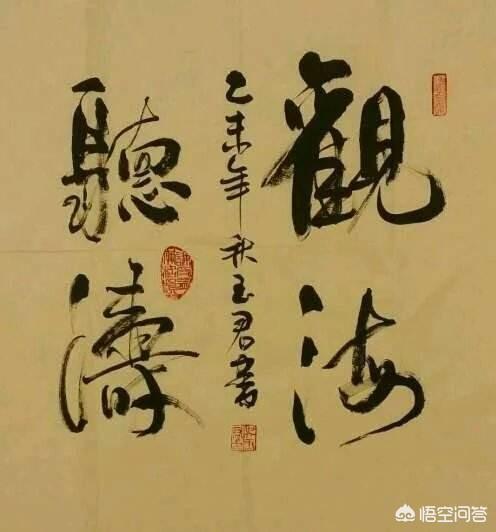 觀海
乙未年秋玉君書
聽濤
悟空问答